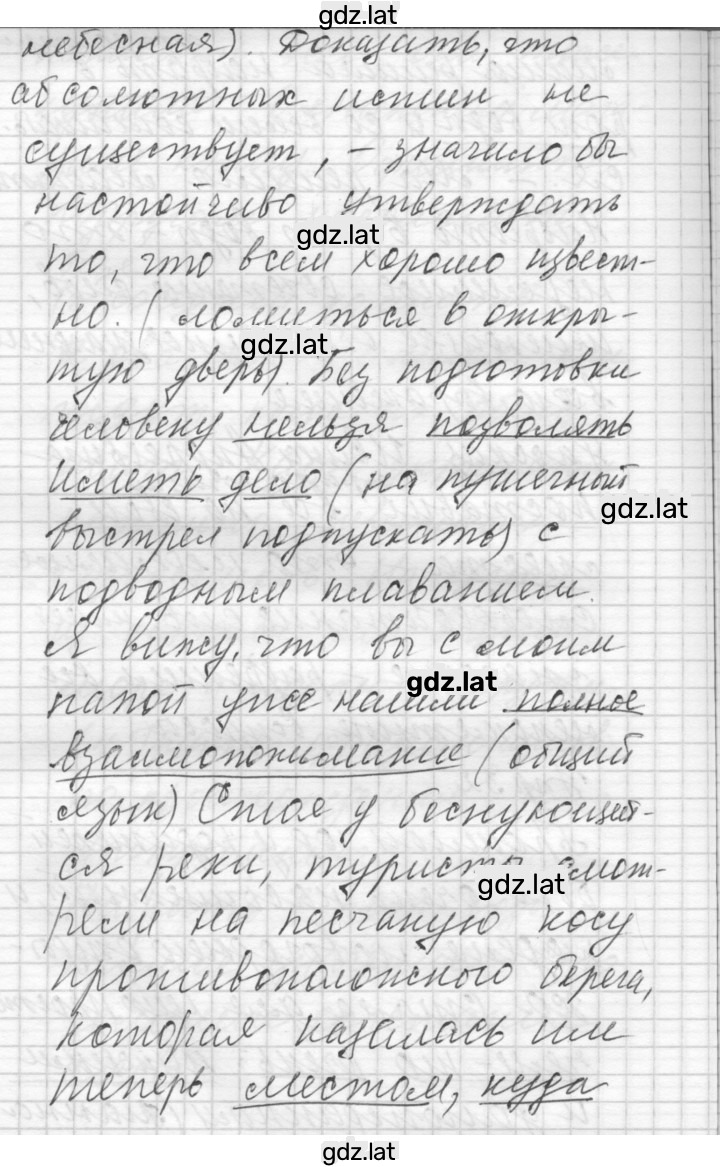 gdz.lat
небесная). Доказать, что
абсолютных истин не
существует, – значило бы
настойчиво утверждать
gdz.lat
то, что всем хорошо извест-
но. (ломиться в откры-
gdz.lat
тую дверь). Без подготовки
человеку нельзя позволять
иметь дело (на пушечный
gdz.lat
выстрел подпускать) с
подводным плаванием.
Я вижу, что вы с моим
gdz.lat
папой уже нашли полное
взаимопонимание (общий
язык) Стоя у беснующей-
ся реки, туристы смот-
gdz.lat
рели на песчаную косу
противоположного берега,
которая казалась им
теперь местом, куда
gdz.lat